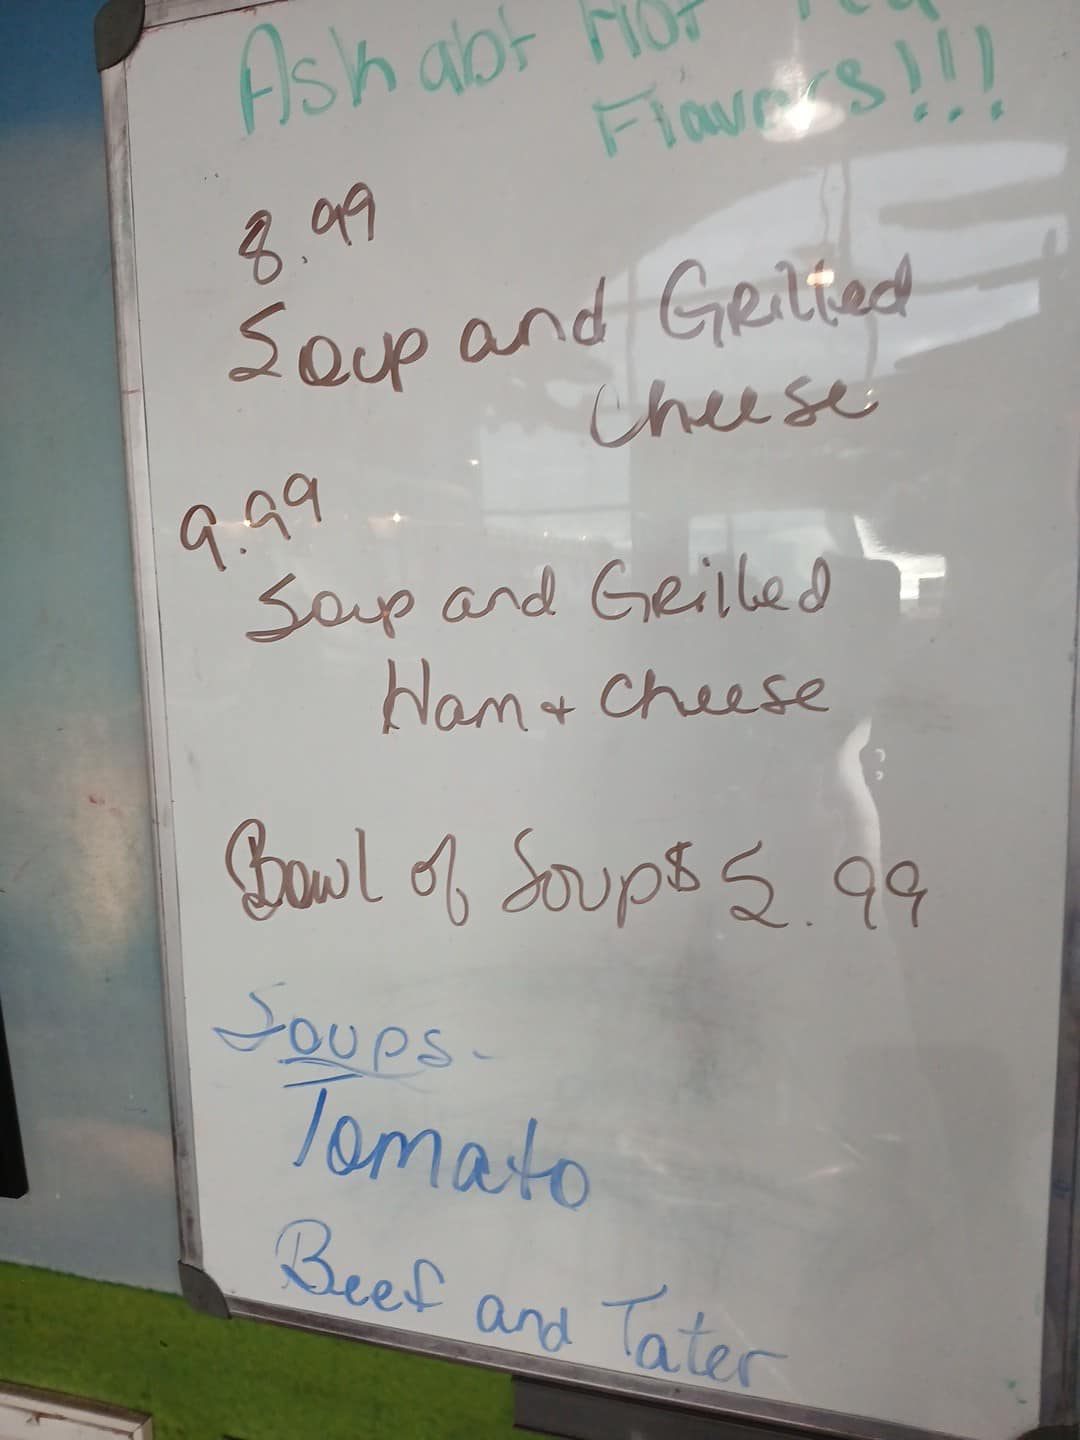 Ask abt Hot Tea
Flavors!!!
8.99
Soup and Grilled
Cheese
9.99
Soup and Grilled
Ham + Cheese
Bowl of Soup $5.99
Soups-
Tomato
Beef and Tater